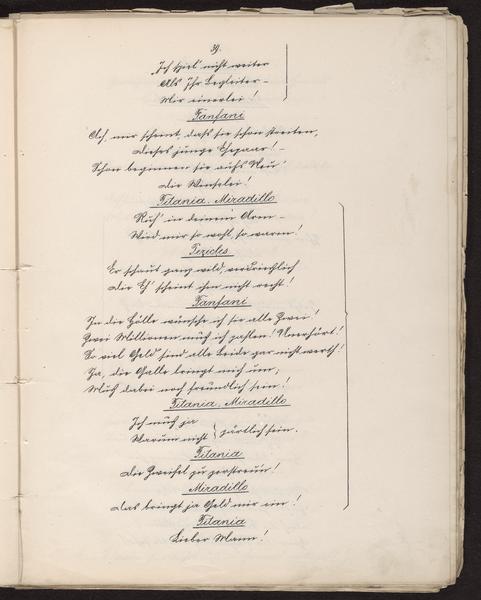 39.
Ich spiel' nicht weiter
Als Ihr Begleiter –
Mir einerlei!
Fanfani
Ach, mir scheint, dass sie schon streiten,
Dieses junge Ehepaar! –
Schon beginnen sie aufs Neu'
Die Winselei!
Titania. Miradillo
Ruh' in deinem Arm –
Wird mir so wohl, so warm!
Pericles
Er schaut ganz wild, verdriesslich
Die Eh' scheint ihm nicht recht!
Fanfani
In die Hölle wünsche ich sie alle Zwei!
Zwei Millionen muß ich zahlen! Unerhört!
So viel Geld sind alle beide gar nicht werth!
Ja, die Galle bringt mich um,
Muß dabei noch freundlich sein!
Titania. Miradillo
Ich muß ja
Warum nicht } zärtlich sein.
Titania
Die Zweifel zu zerstreu'n!
Miradillo
Das bringt ja Geld mir ein!
Titania
Lieber Mann!